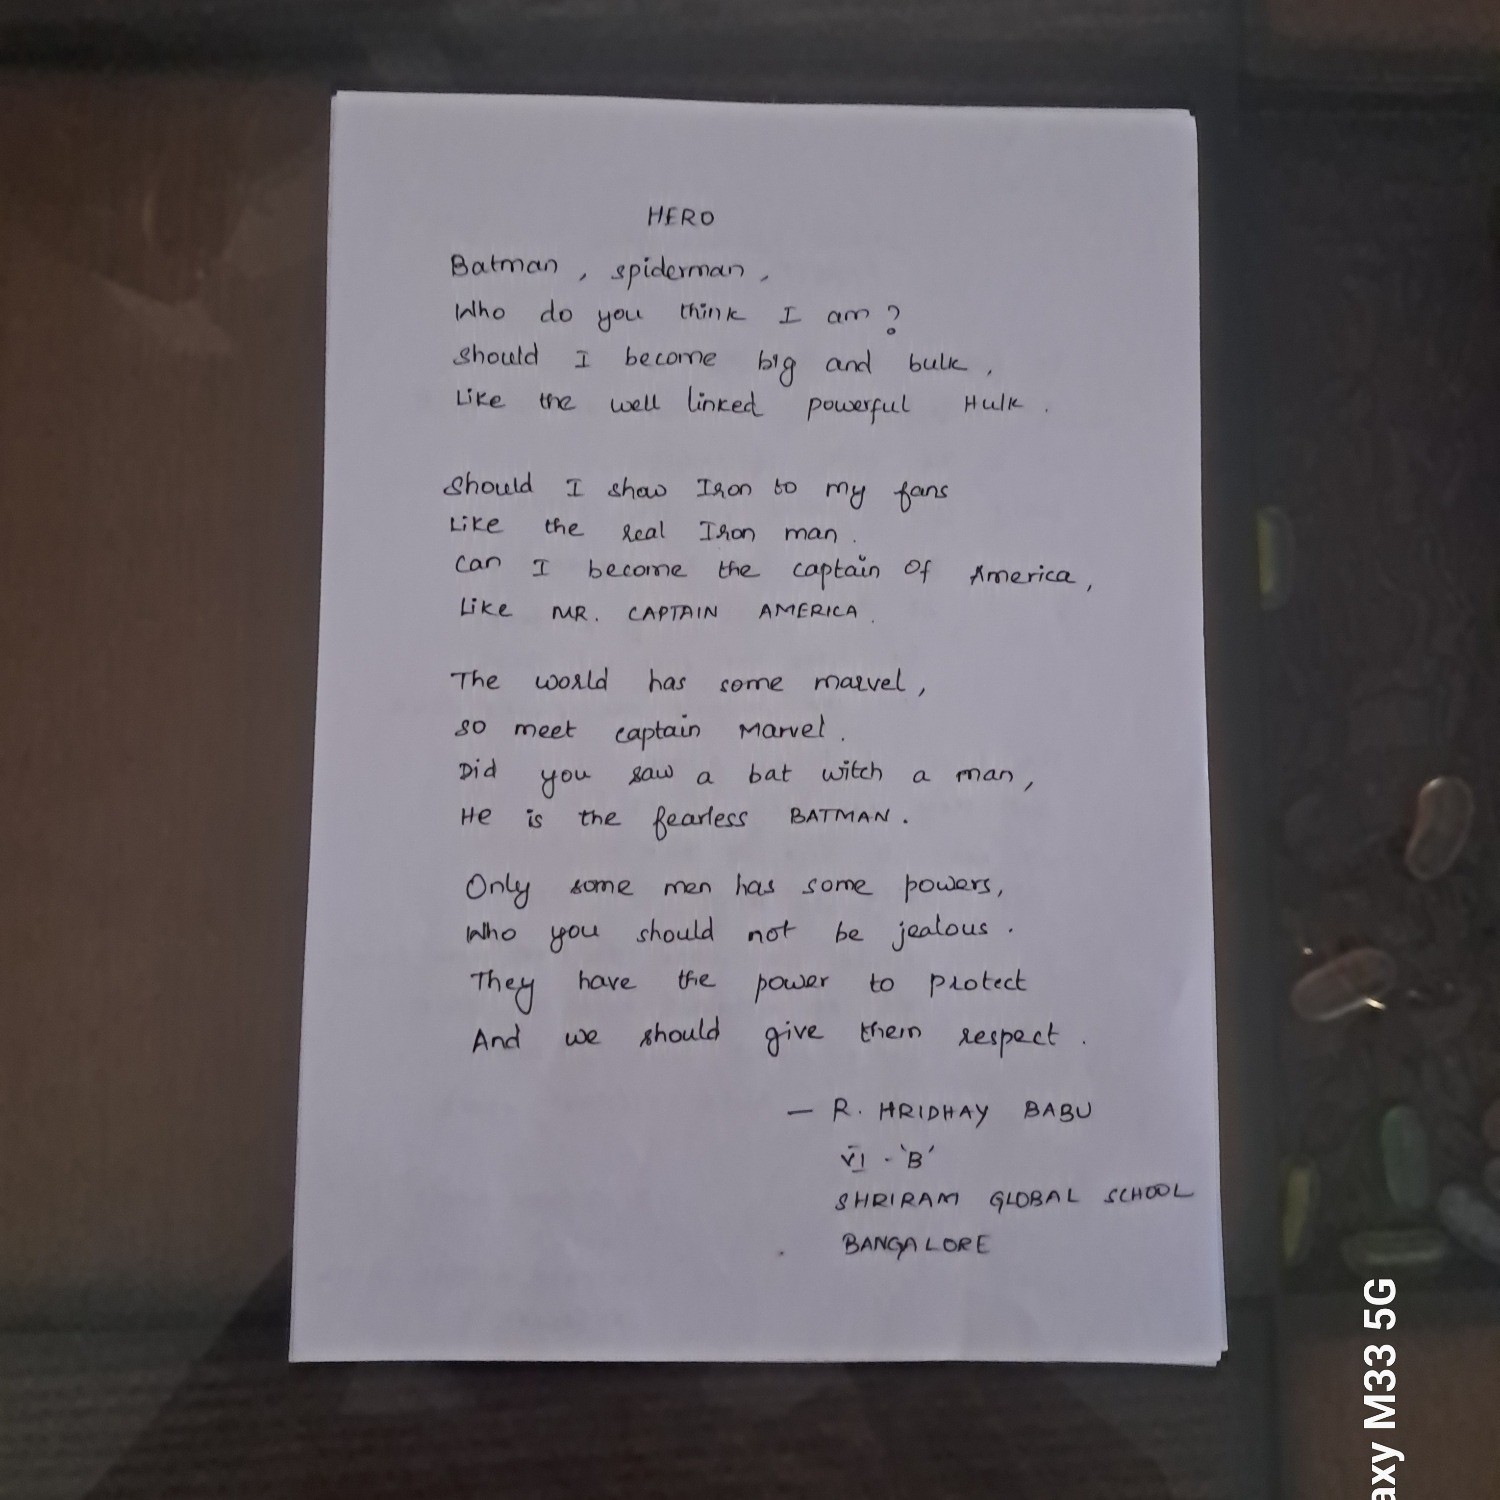 HERO
Batman , spiderman ,
Who do you think I am ?
Should I become big and bulk ,
Like the well linked powerful Hulk .
Should I show Iron to my fans
Like the real Iron man .
Can I become the captain of America ,
Like MR. CAPTAIN AMERICA .
The world has some marvel ,
so meet captain Marvel .
Did you saw a bat witch a man ,
He is the fearless BATMAN .
Only some men has some powers,
Who you should not be jealous .
They have the power to protect
And we should give them respect .
— R. HRIDHAY BABU
VI - 'B'
SHRIRAM GLOBAL SCHOOL
BANGALORE
axy M33 5G